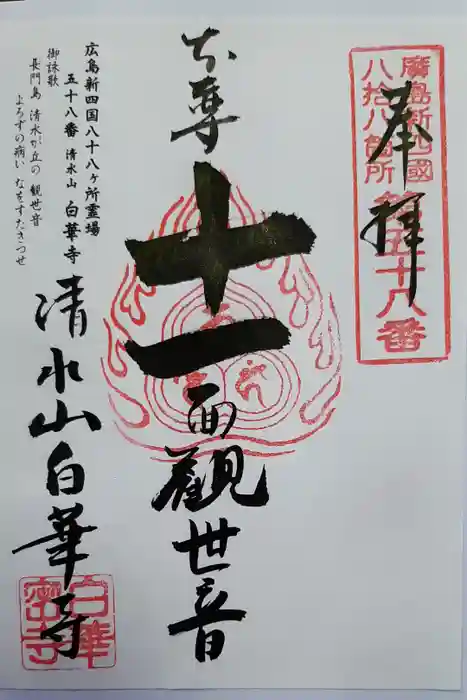 廣島新四國
八拾八箇所
第五十八番
奉拝
本尊
十一面觀世音
広島新四国八十八ヶ所霊場
五十八番 清水山 白華寺
御詠歌
長門島 清水が丘の 観世音
よろずの病い なをすたきつせ
清水山白華寺
白華
密寺